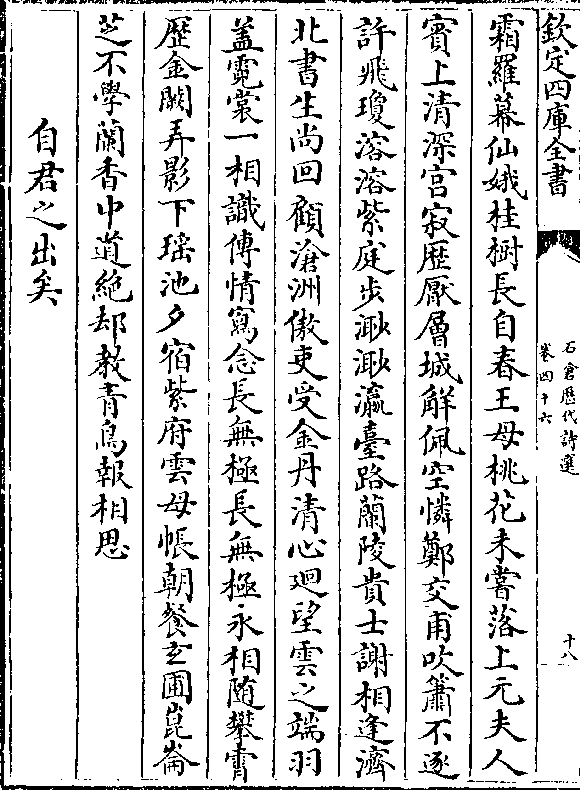 欽定四庫全書
石倉歴代詩選
卷四十六
十八
霜羅幕仙娥桂樹長自春王母桃花未嘗落上元夫人
賓上清深宫寂歴厭層城解佩空憐鄭交甫吹簫不逐
許飛瓊溶溶紫庭步渺渺瀛臺路蘭陵貴士謝相逢濟
北書生尚回顧滄洲傲吏愛金丹清心廻望雲之端羽
盖霓裳一相識傳情寫念長無極長無極永相随攀霄
歴金闕弄影下瑶池夕宿紫府雲母帳朝餐玄圃崑崙
芝不學蘭香中道絶却教青鳥報相思
自君之出矣